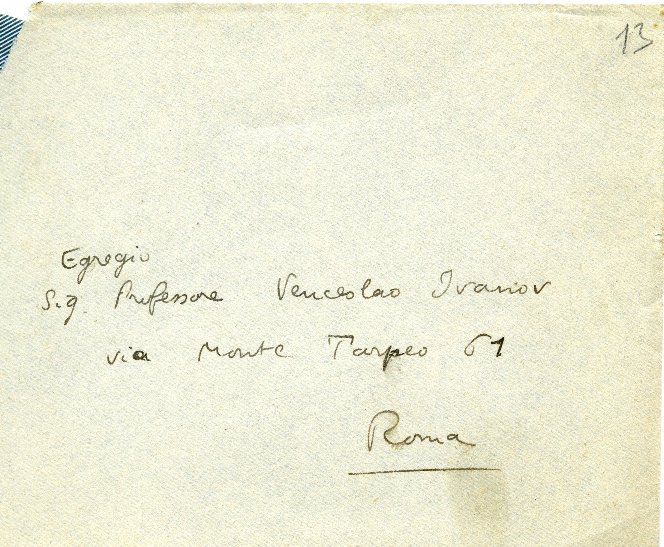 13
Egregio
Sig. Professore Venceslao Ivanov
via Monte Tarpeo 61
Roma